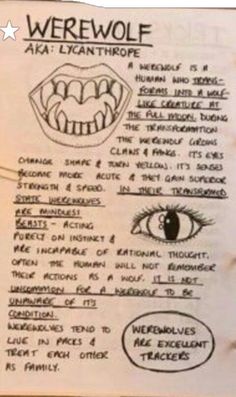 WEREWOLF
AKA: LYCANTHROPE
A WEREWOLF IS A
HUMAN WHO TRANS-
FORMS INTO A WOLF-
LIKE CREATURE AT
THE FULL MOON. DURING
THE TRANSFORMATION
THE WEREWOLF GROWS
CLAWS & FANGS. IT'S EYES
CHANGE SHAPE & TURN YELLOW. IT'S SENSES
BECOME MORE ACUTE & THEY GAIN SUPERIOR
STRENGTH & SPEED. IN THEIR TRANSFORMED
STATE WEREWOLVES
ARE MINDLESS
BEASTS - ACTING
PURELY ON INSTINCT &
ARE INCAPABLE OF RATIONAL THOUGHT.
OFTEN THE HUMAN WILL NOT REMEMBER
THEIR ACTIONS AS A WOLF. IT IS NOT
UNCOMMON FOR A WEREWOLF TO BE
UNAWARE OF IT'S
CONDITION.
WEREWOLVES TEND TO
LIVE IN PACKS &
TREAT EACH OTHER
AS FAMILY.
WEREWOLVES
ARE EXCELLENT
TRACKERS